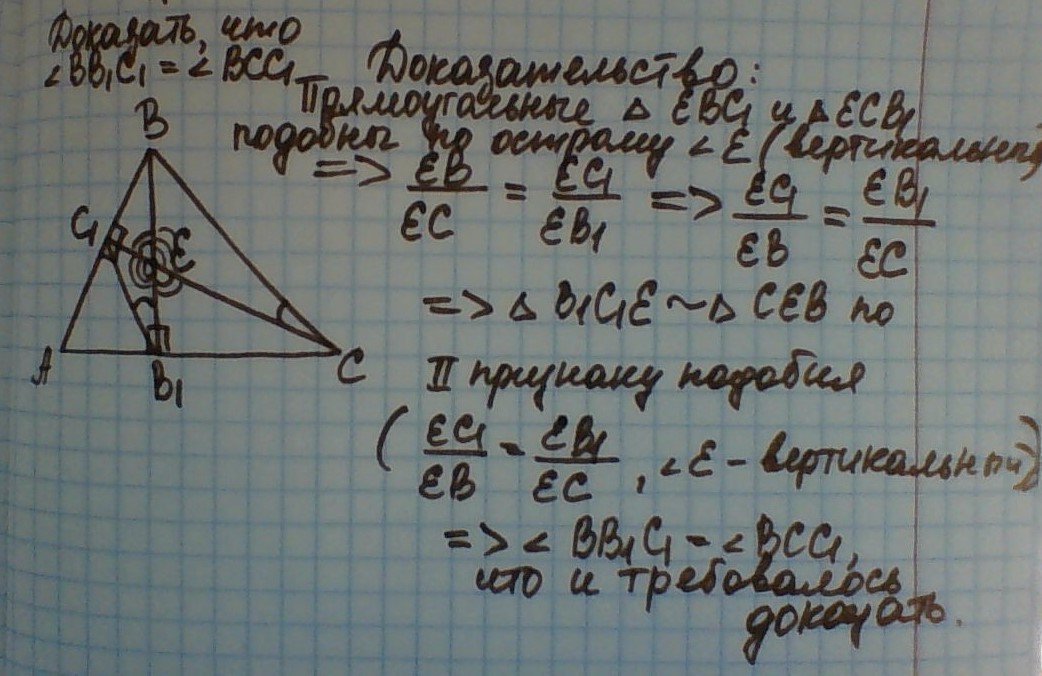 Доказать, что
∠BB₁C₁ = ∠BCC₁
Доказательство:
Прямоугольные △ EBC₁ и △ ECB₁
подобны по острому ∠E (вертикальный)
=> EB/EC = EC₁/EB₁ => EC₁/EB = EB₁/EC
=> △ B₁C₁E ~ △ CEB по
II признаку подобия
(EC₁/EB = EB₁/EC, ∠E - вертикальный)
=> ∠ BB₁C₁ = ∠BCC₁,
что и требовалось
доказать.
B
C₁
E
A
B₁
C